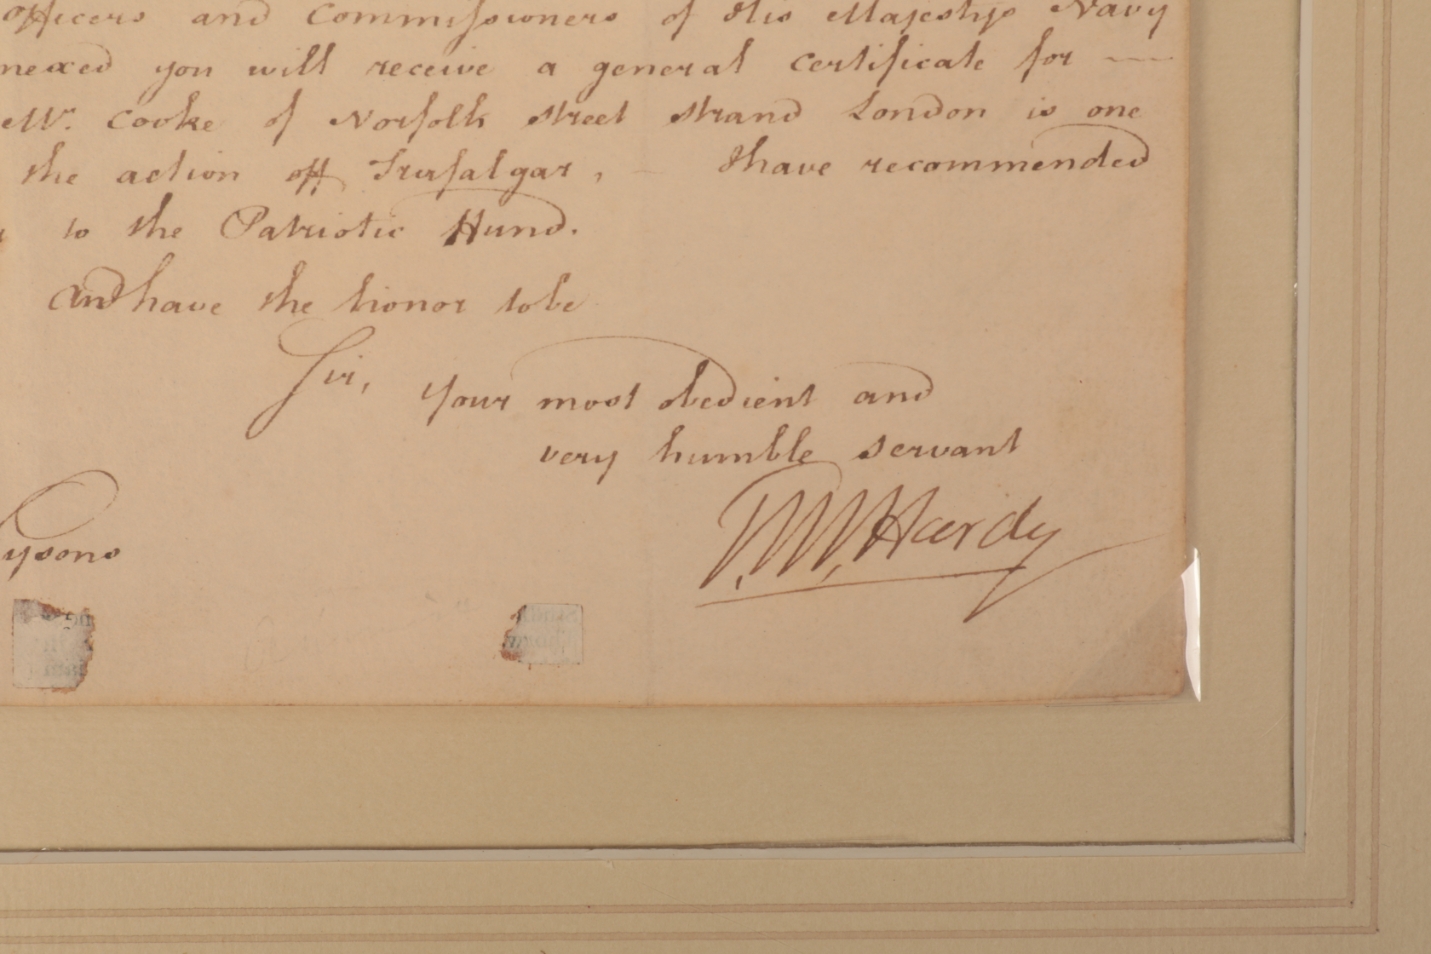 officers and Commissioners of His Majestys Navy
nexed you will receive a general certificate for —
Mr. Cooke of Norfolk street strand London is one
the action off Trafalgar, — I have recommended
to the Patriotic Hund.
and have the honor to be
Sir,
Your most obedient and
very humble servant
T. M. Hardy
ysons